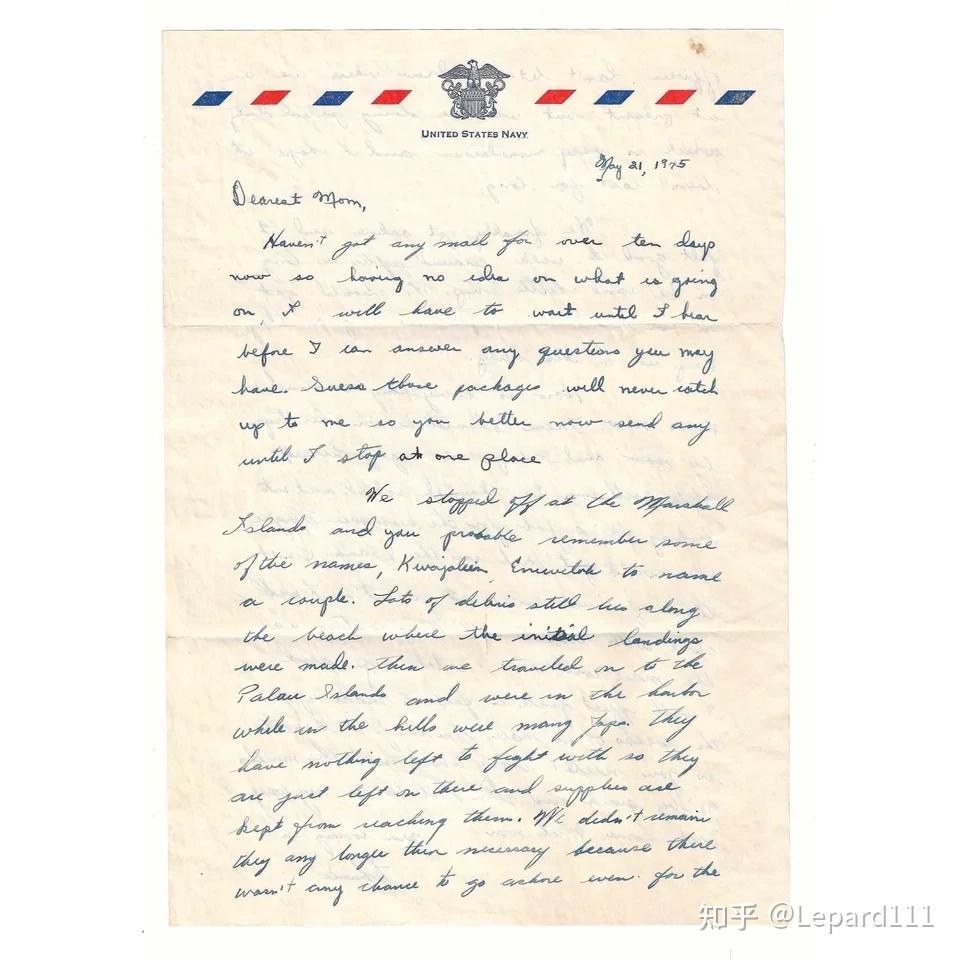 UNITED STATES NAVY
May 21, 1975
Dearest Mom,
Haven't got any mail for over ten days
now so having no idea on what is going
on, I will have to wait until I hear
before I can answer any questions you may
have. Guess those packages will never catch
up to me so you better now send any
until I stop at one place
We stopped off at the Marshall
Islands and you probable remember some
of the names, Kwajalien, Eniwetok to name
a couple. Lots of debris still lies along
the beach where the initial landings
were made. Then we traveled on to the
Palau Islands and were in the harbor
while in the hills were many Japs. They
have nothing left to fight with so they
are just left on there and supplies are
kept from reaching them. We didn't remain
they any longer then necessary because there
wasn't any chance to go ashore even. For the
知乎 @Lepard111